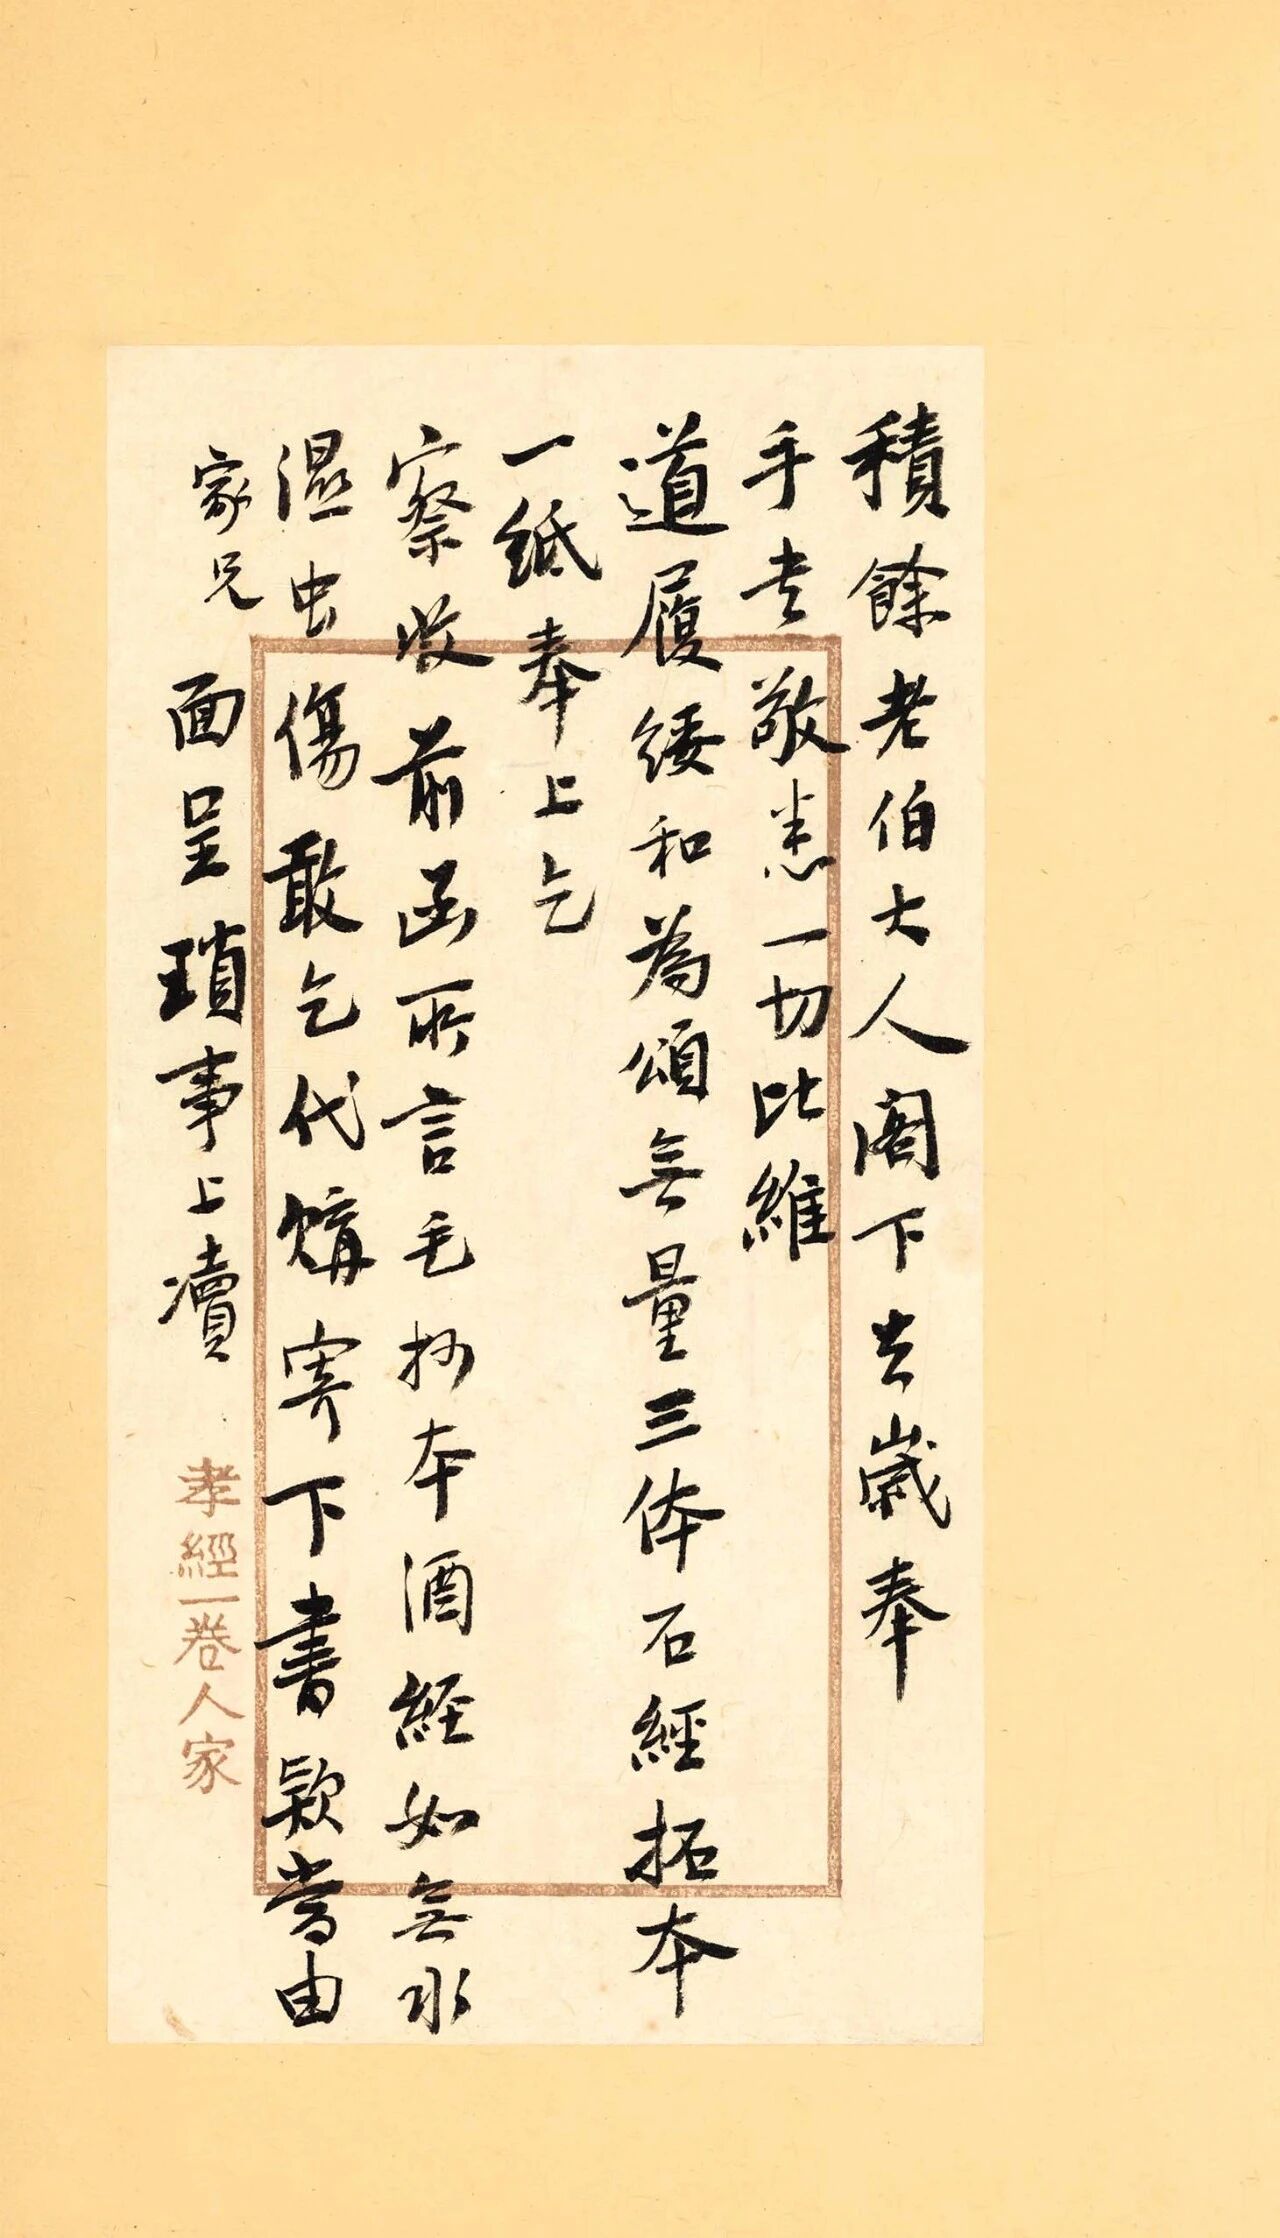 積餘老伯大人閣下去歲奉
手書敬悉一切比維
道履綏和為頌無量三体石經拓本
一紙奉上乞
察收前函所言毛抄本酒經如無水
濕虫傷敢乞代購寄下書款當由
家兄面呈瑣事上瀆
孝經一卷人家